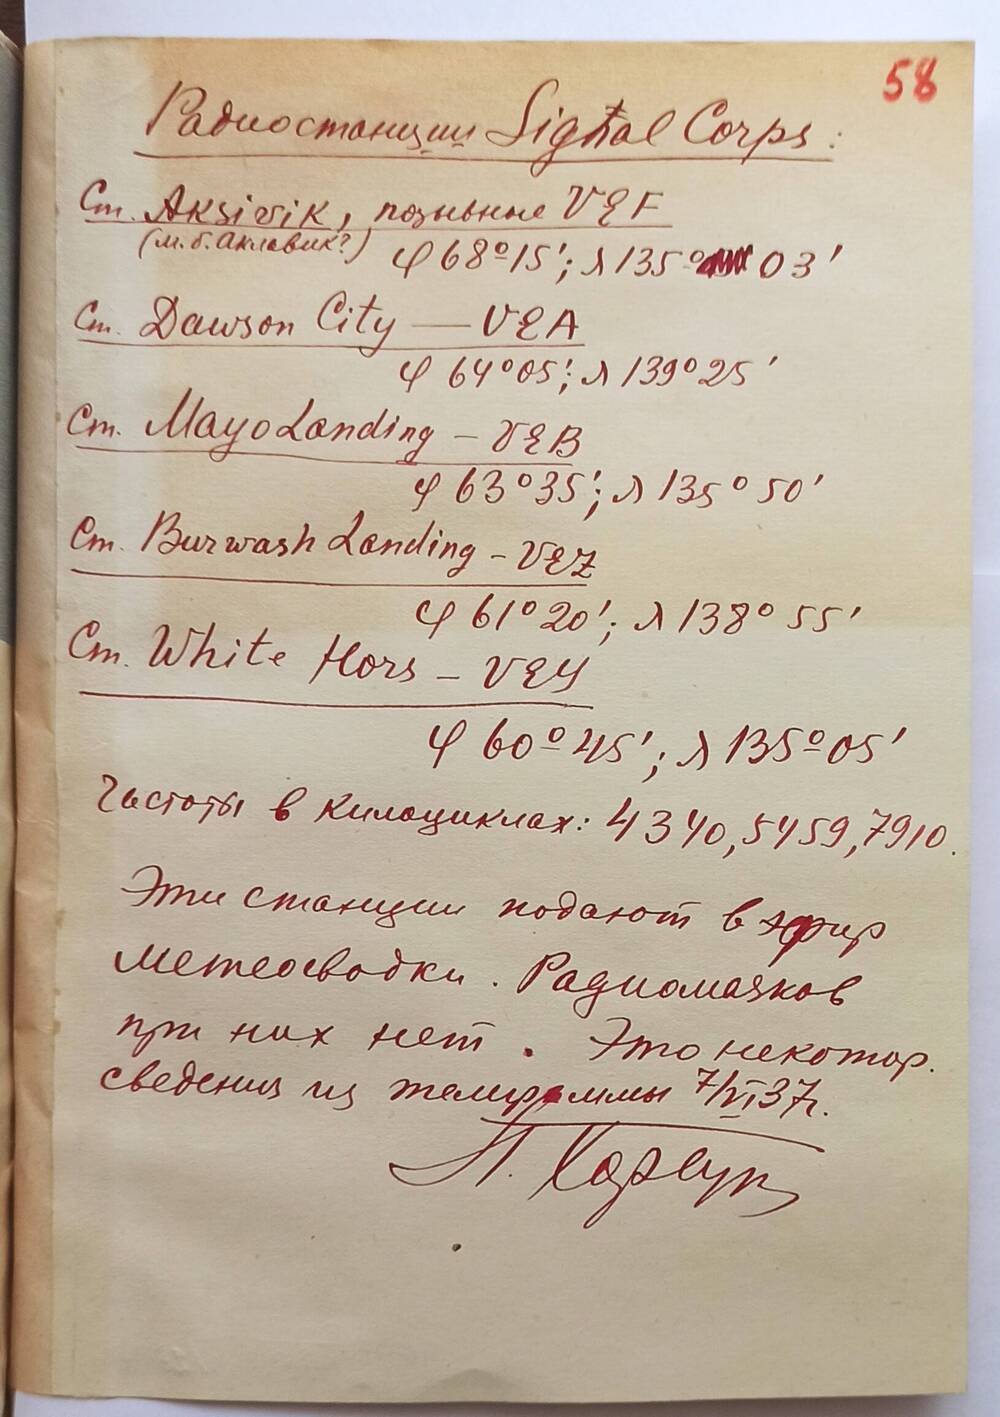 58
Радиостанции Signal Corps:
Ст. Aksivik, позывные VEF
(м.б. Аклавик?) φ 68°15'; λ 135° 03'
Ст. Dawson City — VEA
φ 64°05'; λ 139°25'
Ст. Mayo Landing – VEB
φ 63°35'; λ 135°50'
Ст. Burwash Landing – VEZ
φ 61°20'; λ 138°55'
Ст. White Hors – VEY
φ 60°45'; λ 135°05'
Частоты в килоциклах: 4340, 5459, 7910.
Эти станции подают в эфир
метеосводки. Радиомаяков
при них нет. Это некотор.
сведения из телеграммы 7/VI 37г.